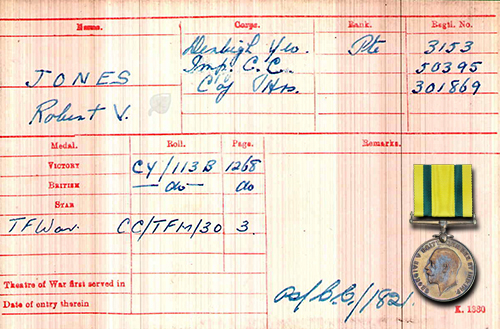 Name. Corps. Rank. Regtl. No.
Denbigh Yeo. Pte 3153
JONES Imp. C. C. 50395
Robert V. C of Hrs. 301869
Medal. Roll. Page. Remarks.
VICTORY CY/113B 1268
BRITISH — do — do
STAR
TF War. CC/TFM/30 3.
Theatre of War first served in
Date of entry therein
K. 1380